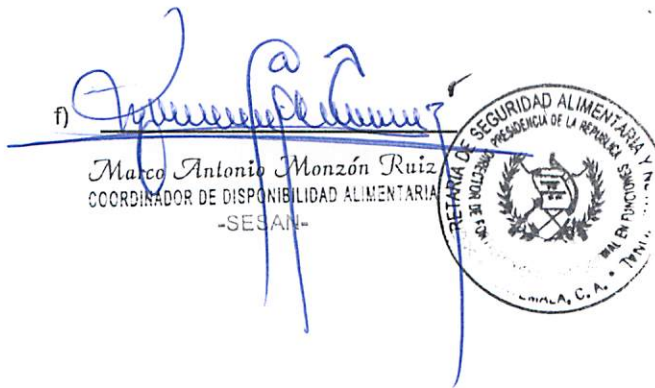 f)
Marco Antonio Monzón Ruiz
COORDINADOR DE DISPONIBILIDAD ALIMENTARIA
-SESAN-
RETARIA DE SEGURIDAD ALIMENTARIA Y
PRESIDENCIA DE LA REPUBLICA
EN FUNCIONES
C. A.